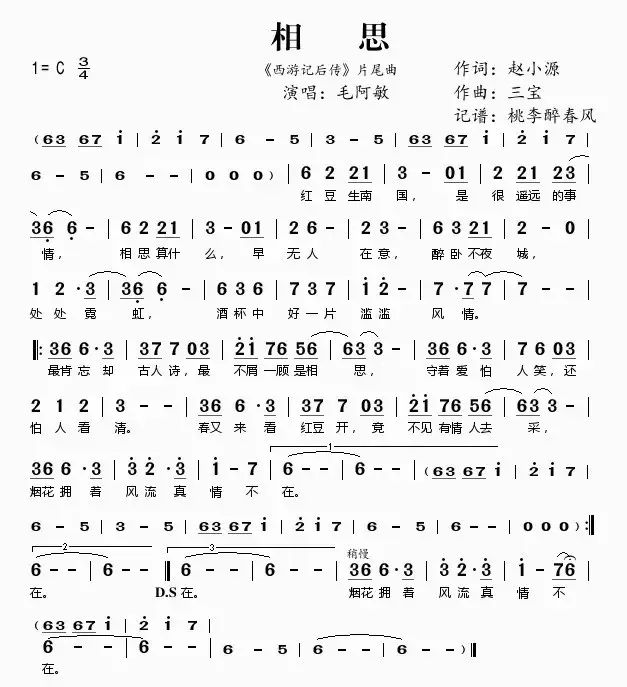 相 思
1= C 3/4
《西游记后传》片尾曲
作词：赵小源
演唱：毛阿敏
作曲：三宝
记谱：桃李醉春风
( 63 67 i | 2 i 7 | 6 - 5 | 3 - 5 | 63 67 i | 2 i 7 |
6 - 5 | 6 - - | 0 0 0 ) | 6 2 21 | 3 - 01 | 2 21 23 |
红 豆 生南 国， 是 很 遥远 的事
36 6 - | 6 2 21 | 3 - 01 | 2 6 - | 2 3 - | 6 3 21 | 2 - 0 |
情， 相思 算什 么， 早 无 人 在 意， 醉 卧 不夜 城，
1 2 · 3 | 36 6 - | 6 3 6 | 7 3 7 | i 2 - | 7 · 7 7 | 7 - - |
处 处 霓 虹， 酒 杯 中 好 一 片 滥 滥 风 情。
‖: 36 6 · 3 | 37 7 03 | 2i 76 56 | 63 3 - | 36 6 · 3 | 7 6 03 |
最肯 忘 却 古人 诗， 最 不屑 一顾 是相 思， 守着 爱 怕 人 笑， 还
2 1 2 | 3 - - | 36 6 · 3 | 37 7 03 | 2i 76 56 | 63 3 - |
怕 人 看 清。 春又 来 看 红豆 开， 竟 不见 有情 人去 采，
1
36 6 · 3 | 3 2 · 3 | i - 7 | 6 - - | 6 - - | ( 63 67 i | 2 i 7 |
烟花 拥 着 风 流 真 情 不 在。
6 - 5 | 3 - 5 | 63 67 i | 2 i 7 | 6 - 5 | 6 - - | 0 0 0 ) :‖
2 3 稍慢
6 - - | 6 - - ‖ 6 - - | 6 - - | 36 6 · 3 | 3 2 · 3 | i - 76 |
在。 D.S 在。 烟花 拥 着 风 流 真 情 不
( 63 67 i | 2 i 7 |
6 - - | 6 - - | 6 - 5 | 6 - - | 6 - - ) ‖
在。